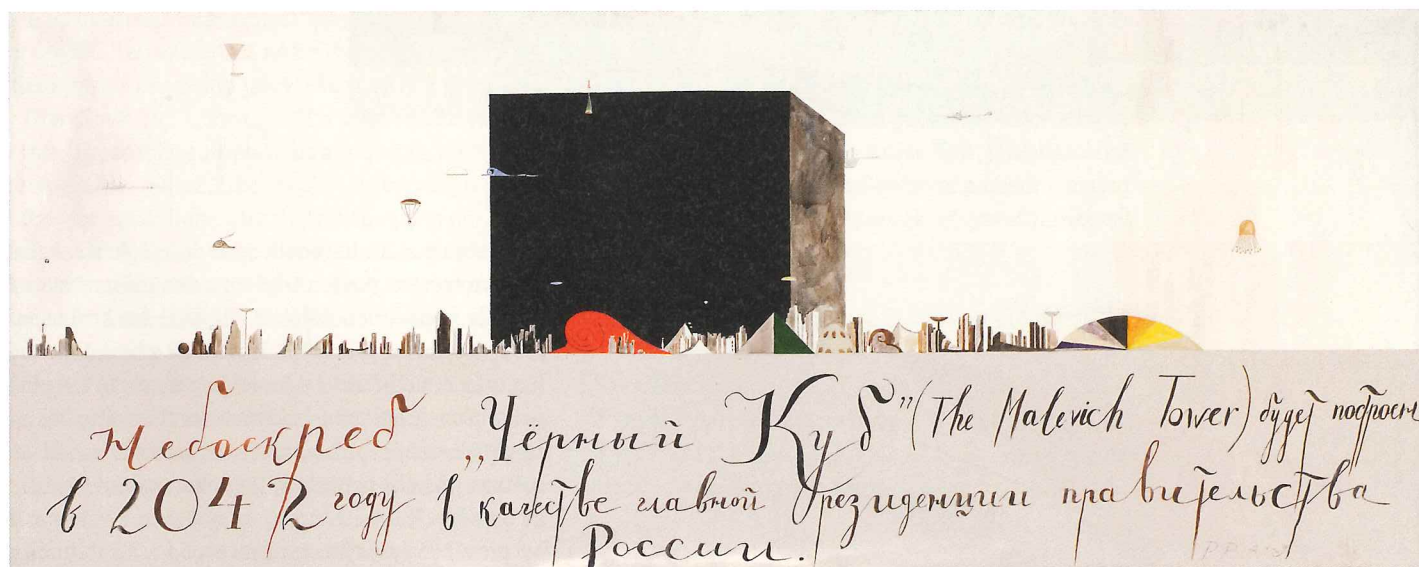 Небоскреб „Чёрный Куб” (The Malevich Tower) будет построен
в 2042 году в качестве главной резиденции правительства
России.